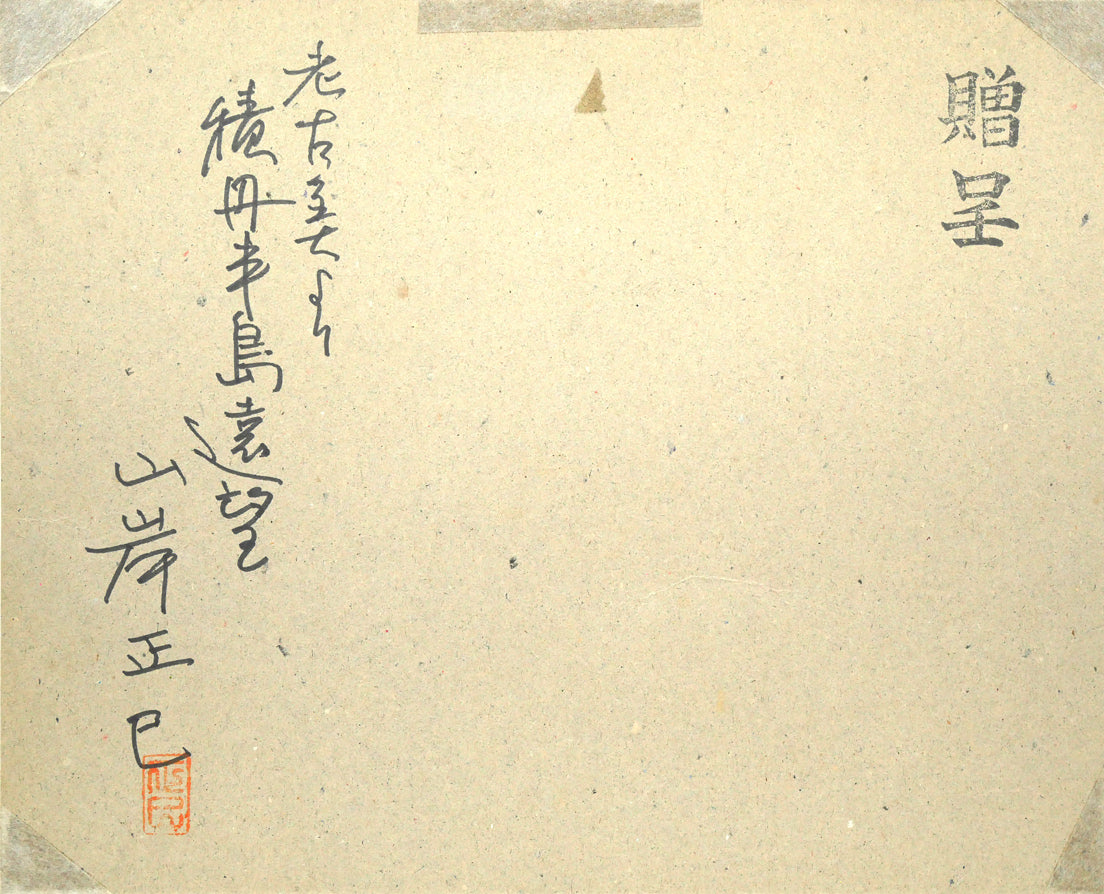 贈呈
老古美より
積丹半島遠望
山岸正巳